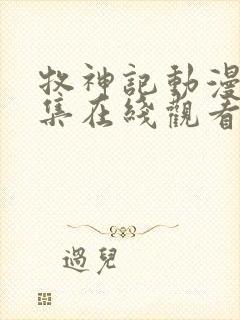 牧神記動漫
集在綫觀看
過兒